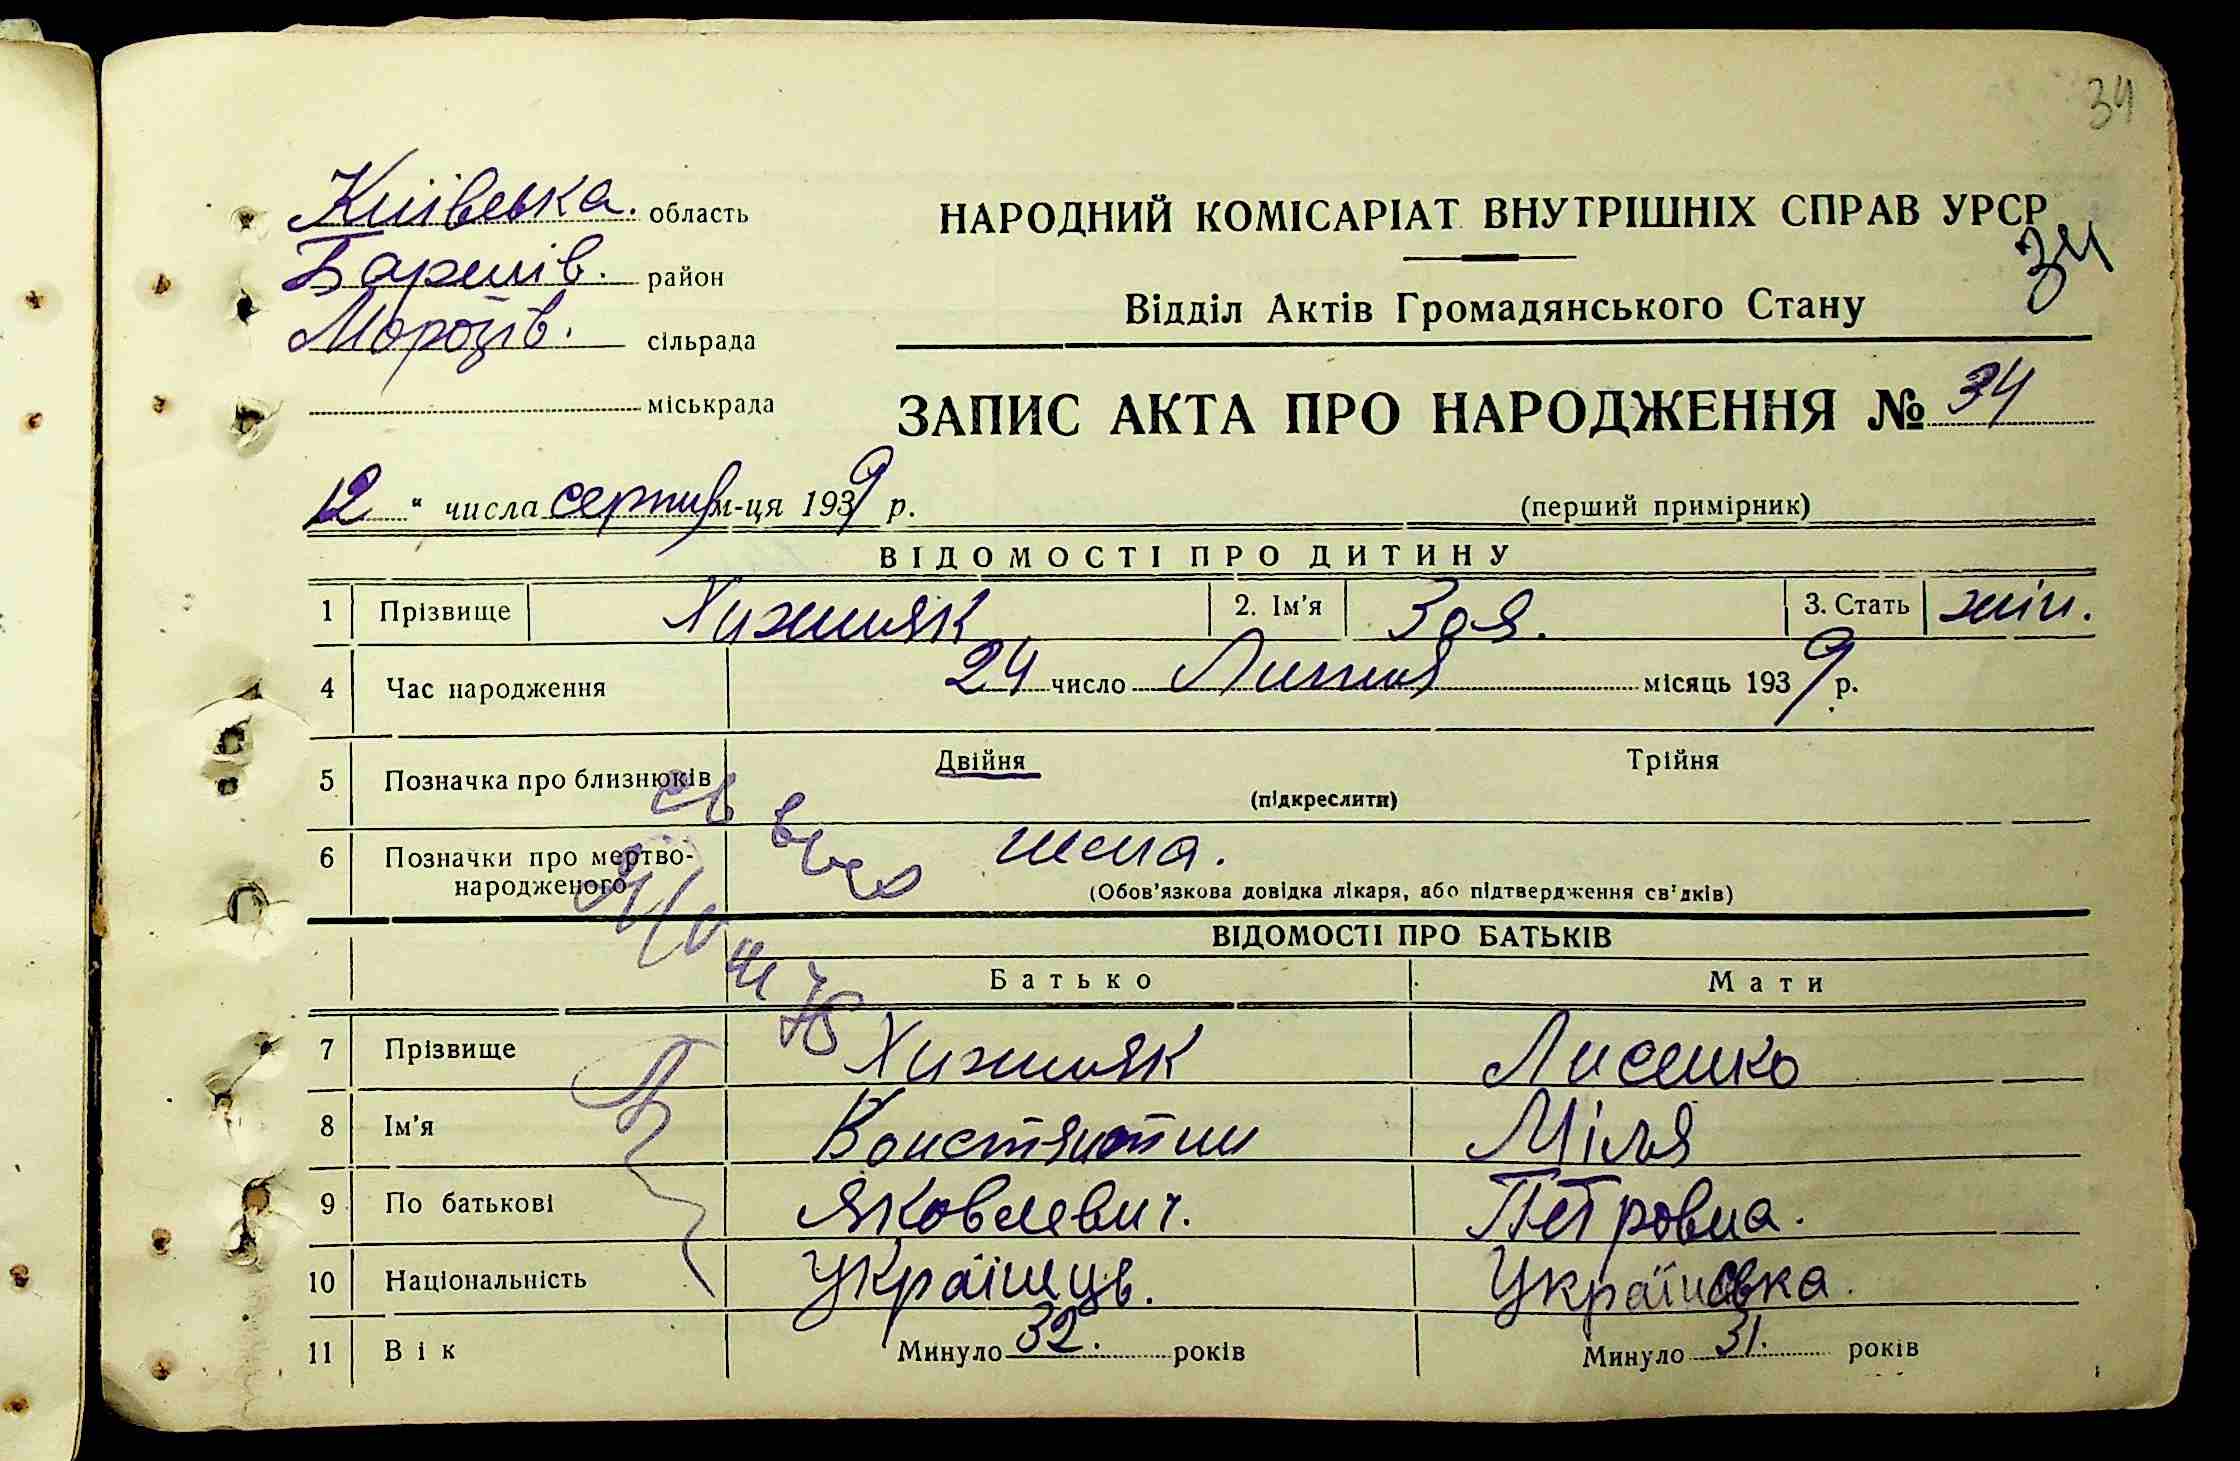 34
Київська. область
Баришів. район
Мороців. сільрада
міськрада
НАРОДНИЙ КОМІСАРІАТ ВНУТРІШНІХ СПРАВ УРСР
34
Відділ Актів Громадянського Стану
ЗАПИС АКТА ПРО НАРОДЖЕННЯ № 34
12 " числа серпня м-ця 1939 р.
(перший примірник)
ВІДОМОСТІ ПРО ДИТИНУ
1 Прізвище Хижняк 2. Ім'я Зоя. 3. Стать жін.
4 Час народження 24 число Липня місяць 1939 р.
5 Позначка про близнюків Двійня Трійня
(підкреслити)
6 Позначки про мертво-народженого нема.
(Обов'язкова довідка лікаря, або підтвердження свідків)
ВІДОМОСТІ ПРО БАТЬКІВ
Батько Мати
7 Прізвище Хижняк Лисенко
8 Ім'я Констянтин Міля
9 По батькові Яковлевич. Петровна.
10 Національність Українць. Українська.
11 Вік Минуло 32. років Минуло 31. років